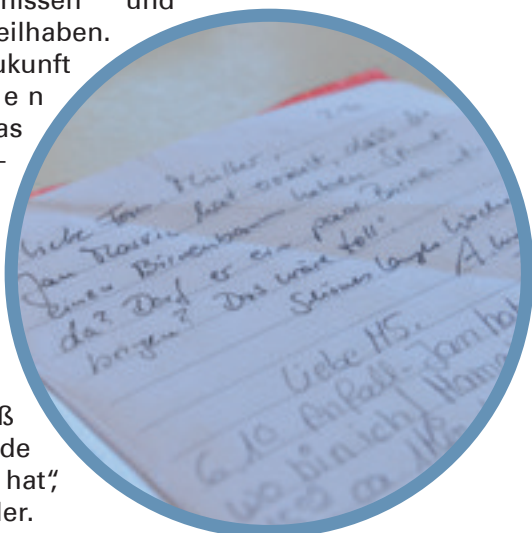 nissen und
eilhaben.
ukunft
e n
as
-
ß
de
hat",
ler.
Liebe Frau Müller,
Jan Marvin hat erzählt, dass
einen Birnenbaum haben
da? Darf er ein paar Birnen
bringen? Das wäre toll!
Schönes langes
Liebe MS.
6.10 Anfall - Jan hat
wo bin ich!